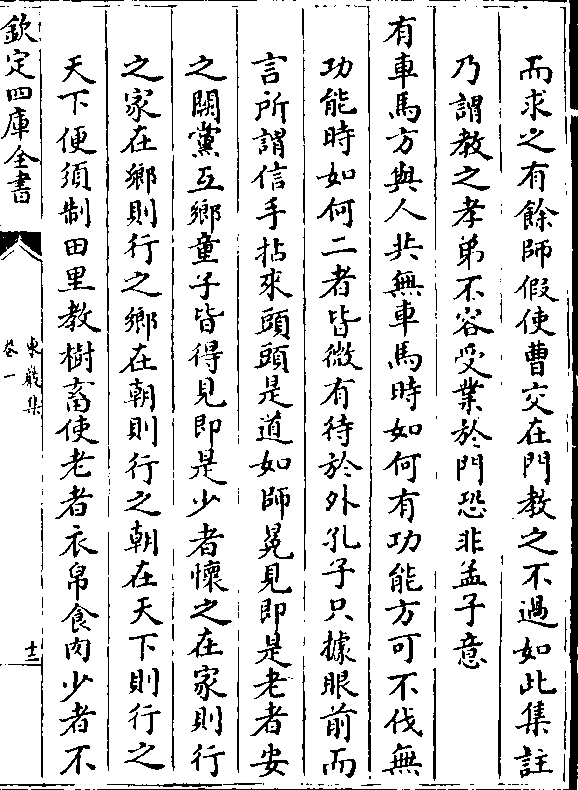 而求之有餘師假使曹交在門教之不過如此集註
乃謂教之孝弟不容受業於門恐非孟子意
有車馬方與人共無車馬時如何有功能方可不伐無
功能時如何二者皆微有待於外孔子只據眼前而
言所謂信手拈來頭頭是道如師冕見即是老者安
之闕黨互鄉童子皆得見即是少者懷之在家則行
之家在鄉則行之鄉在朝則行之朝在天下則行之
天下便須制田里教樹畜使老者衣帛食肉少者不
欽定四庫全書
東巖集
卷一
十三